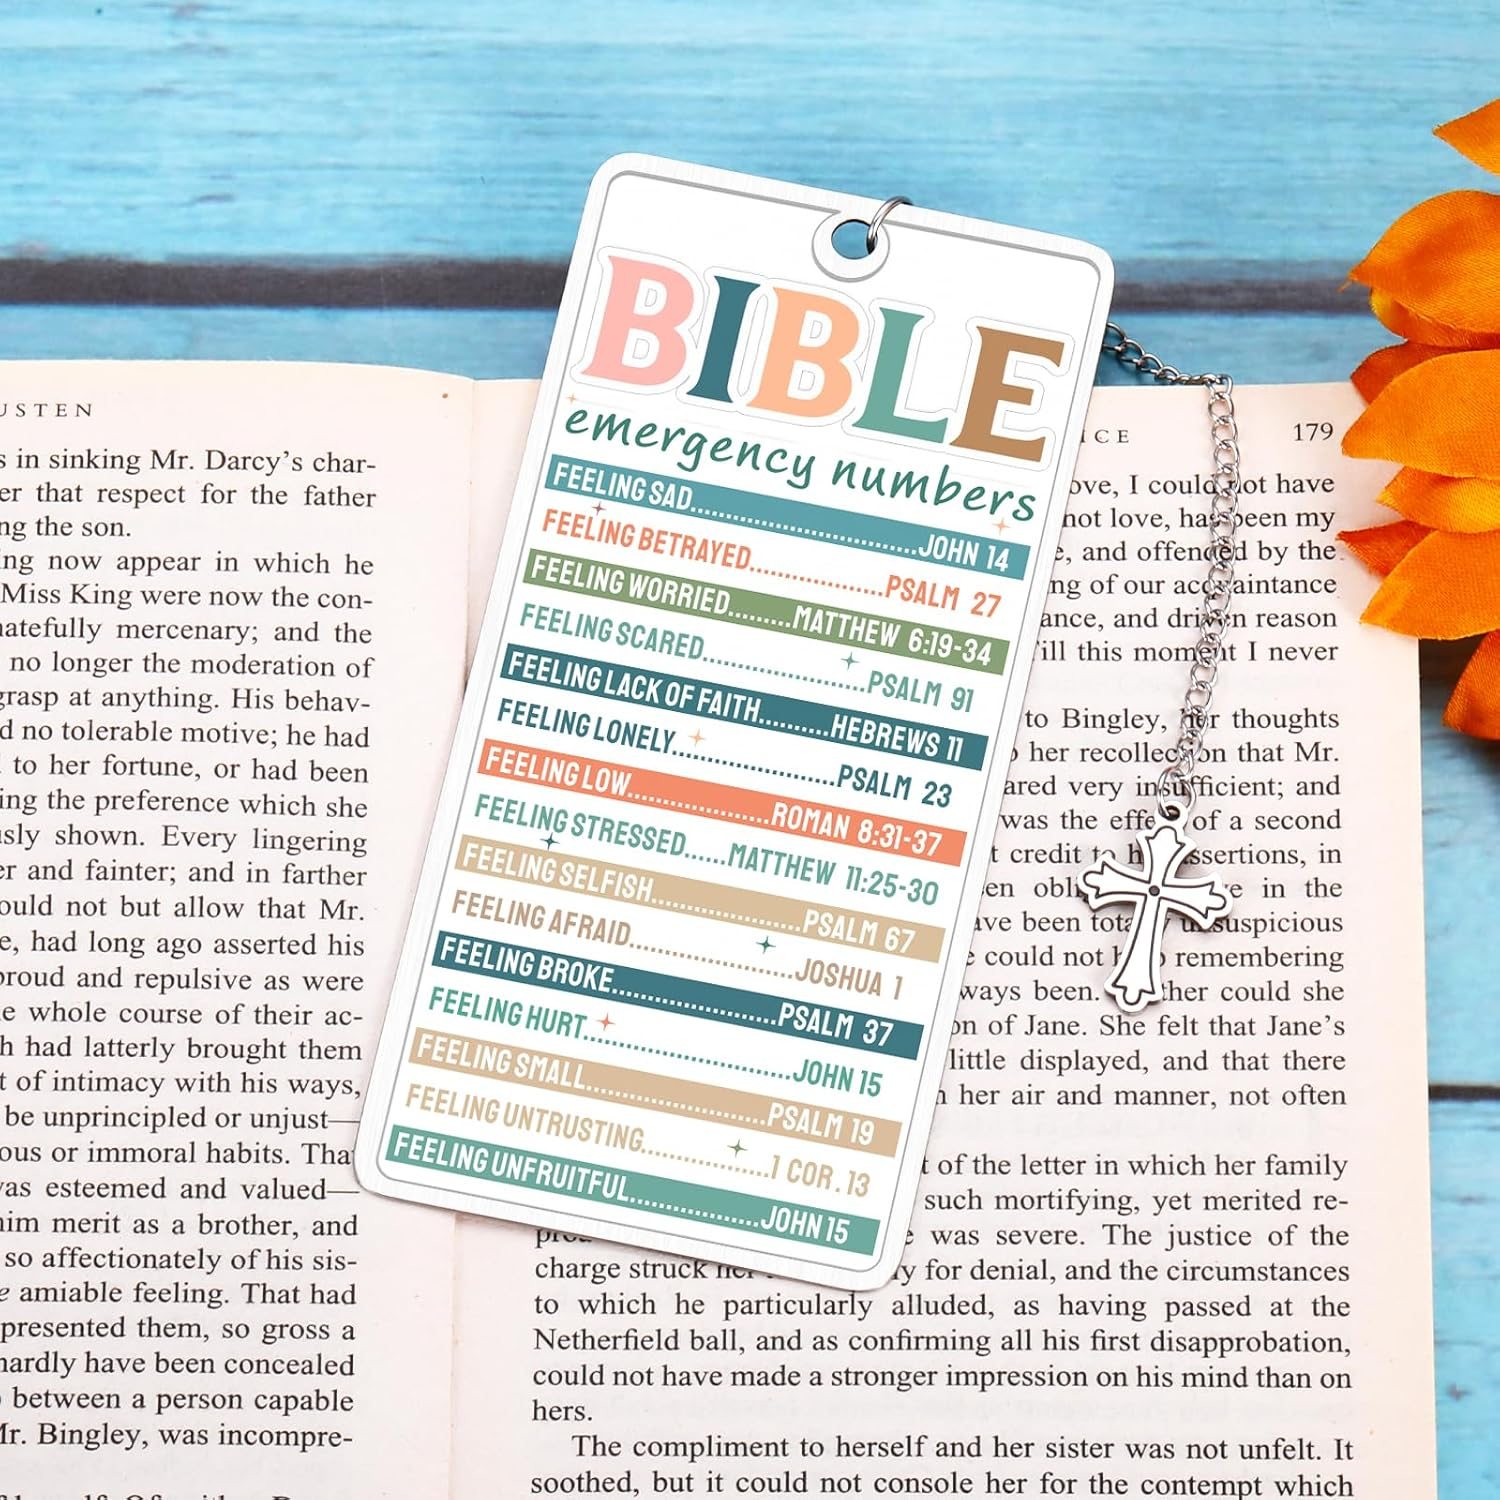 BIBLE
emergency numbers
FEELING SAD..............................JOHN 14
FEELING BETRAYED.................PSALM 27
FEELING WORRIED.........MATTHEW 6:19-34
FEELING SCARED.....................PSALM 91
FEELING LACK OF FAITH.........HEBREWS 11
FEELING LONELY.....................PSALM 23
FEELING LOW..................ROMAN 8:31-37
FEELING STRESSED......MATTHEW 11:25-30
FEELING SELFISH....................PSALM 67
FEELING AFRAID.....................JOSHUA 1
FEELING BROKE.....................PSALM 37
FEELING HURT..........................JOHN 15
FEELING SMALL.......................PSALM 19
FEELING UNTRUSTING.................1 COR. 13
FEELING UNFRUITFUL.................JOHN 15
USTEN
in sinking Mr. Darcy's char-
er that respect for the father
ng the son.
ing now appear in which he
Miss King were now the con-
hatefully mercenary; and the
no longer the moderation of
grasp at anything. His behav-
d no tolerable motive; he had
to her fortune, or had been
ing the preference which she
usly shown. Every lingering
er and fainter; and in farther
ould not but allow that Mr.
e, had long ago asserted his
proud and repulsive as were
e whole course of their ac-
h had latterly brought them
t of intimacy with his ways,
be unprincipled or unjust—
ous or immoral habits. That
was esteemed and valued—
him merit as a brother, and
so affectionately of his sis-
e amiable feeling. That had
presented them, so gross a
hardly have been concealed
between a person capable
Mr. Bingley, was incompre-
ICE 179
ove, I could not have
not love, has been my
e, and offended by the
ng of our acquaintance
ance, and driven reason
Till this moment I never
to Bingley, her thoughts
her recollection that Mr.
ared very insufficient; and
was the effect of a second
t credit to assertions, in
en in the
ave been totally unsuspicious
could not help remembering
ways been. Neither could she
on of Jane. She felt that Jane's
little displayed, and that there
her air and manner, not often
t of the letter in which her family
such mortifying, yet merited re-
was severe. The justice of the
charge struck her for denial, and the circumstances
to which he particularly alluded, as having passed at the
Netherfield ball, and as confirming all his first disapprobation,
could not have made a stronger impression on his mind than on
hers.
The compliment to herself and her sister was not unfelt. It
soothed, but it could not console her for the contempt which